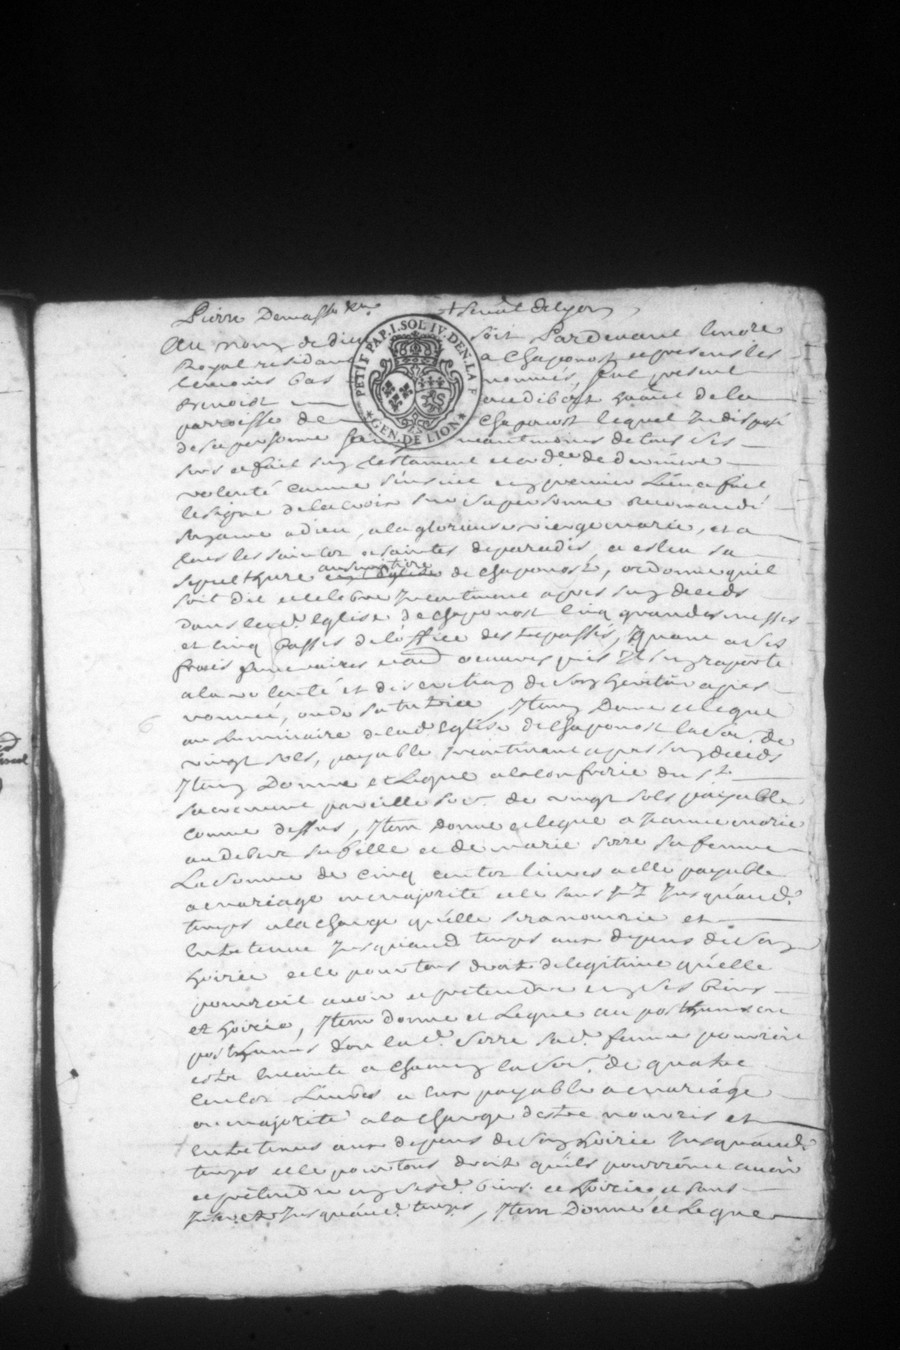 Pierre
Au nom de dieu soit Pardevant
Royal residant a Chaponost et presens les
temoins bas nommés, fut present
Benoist
parroisse de Chaponost lequel Indisposé
de sa personne neantmoins de tous ses
sens a fait son testament et de derniere
volonté comme s'ensuit en premier Lieu a fait
le signe de la croix sur sa personne recomandé
son ame a dieu, a la glorieuse vierge marie, et a
tous les saintes de paradis, a esleu sa
sepulture eglise de chaponost, ordonne quil
soit dit et celebre Incontinent apres son deceds
dans lad. Eglise de Chaponost Cinq grandes messes
et cinq de l'office des trepassés, quant a ses
frais funeraires et oeuvres pies Il s'en raporte
a la volonté et discretion de son heritier apres
nommé, ou de sa tutrice, Item Donne et Legue
au Luminaire de lad. Eglise de Chaponost la som. de
vingt sols, payable Incontinent apres son deceds
Item Donne et Legue a la confrerie du St.
sacrement pareille som. de vingt sols payable
comme dessus, Item donne et legue a Jeanne marie
sa fille et de marie serre sa femme
La somme de cinq cents livres a elle payable
a mariage ou majorité et sans Jusqu'aud.
temps a la charge qu'elle sera nourrie et
Entretenue Jusqu'aud. temps aux depens de son
hoirie et ce pour tous droit de legitime qu'elle
pourroit avoir et pretendre en ses biens
et hoirie, Item donne et Legue au posthume ou
posthumes dont lad. Serre sad. femme pourroit
estre enceinte a chacun la som. de quatre
cents Livres a eux payable a mariage
ou majorité a la charge destre nourris et
entretenus aux depens de son hoirie Jusqu'aud.
temps et ce pour tous droit qu'ils pourront avoir
et pretendre en sesd. biens et hoirie et sans
Jusqu'aud. temps, Item Donne et Legue
PETIT PAP. I. SOL IV. DEN. LA F
GEN. DE LION